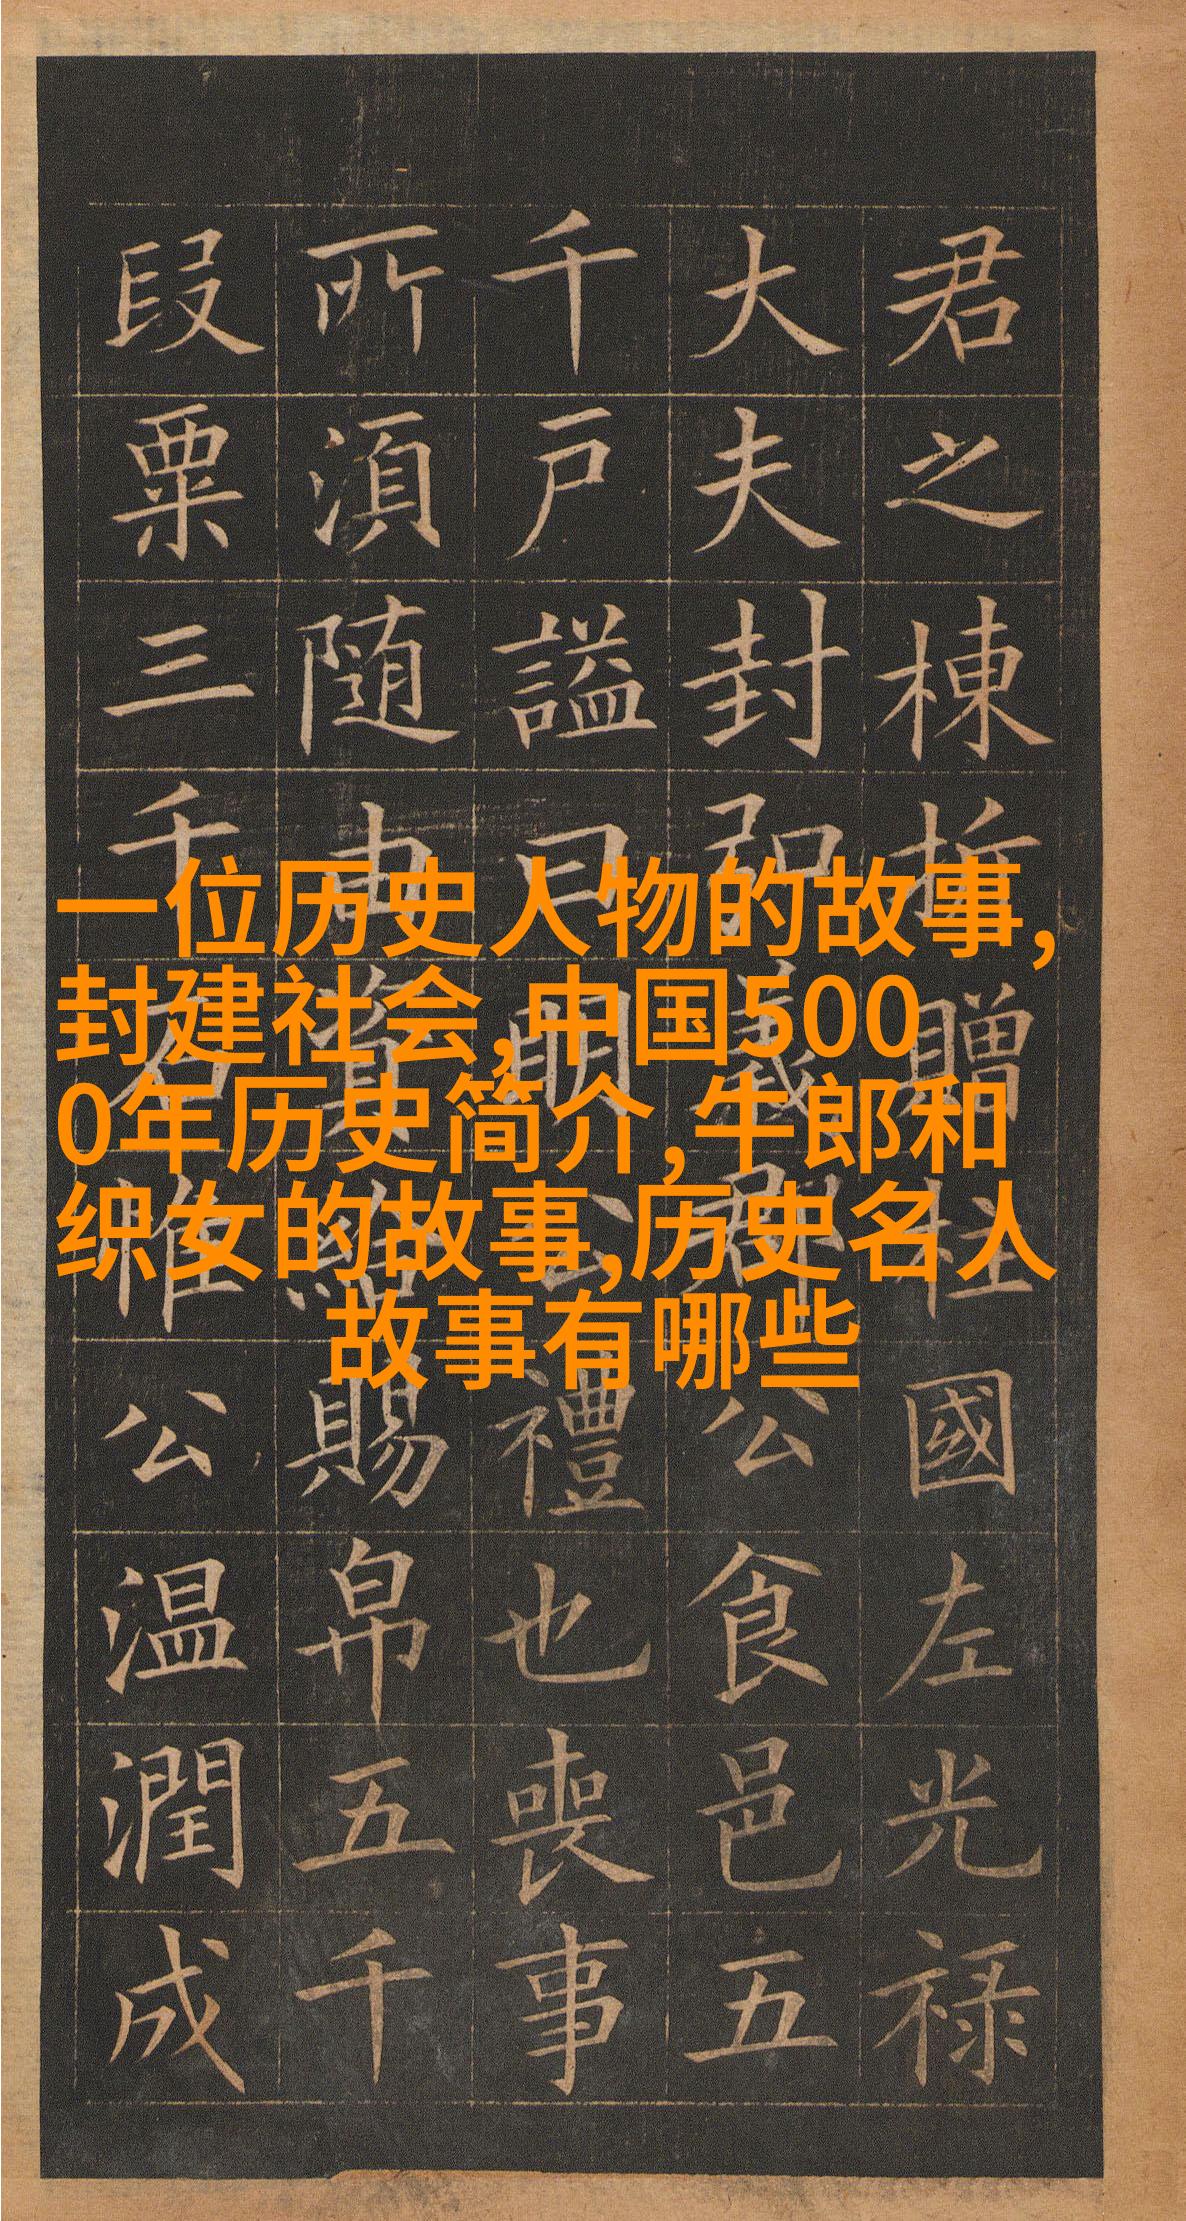 一位历史人物的故事,
封建社会,中国500
0年历史简介,牛郎和
织女的故事,历史名人
故事有哪些
君之棟折贈柱國左光禄
大夫封弘義郡公食邑五
千戸謚曰明公禮也喪事
所湏随由資給賜帛五千
段粟三千石惟公温潤成